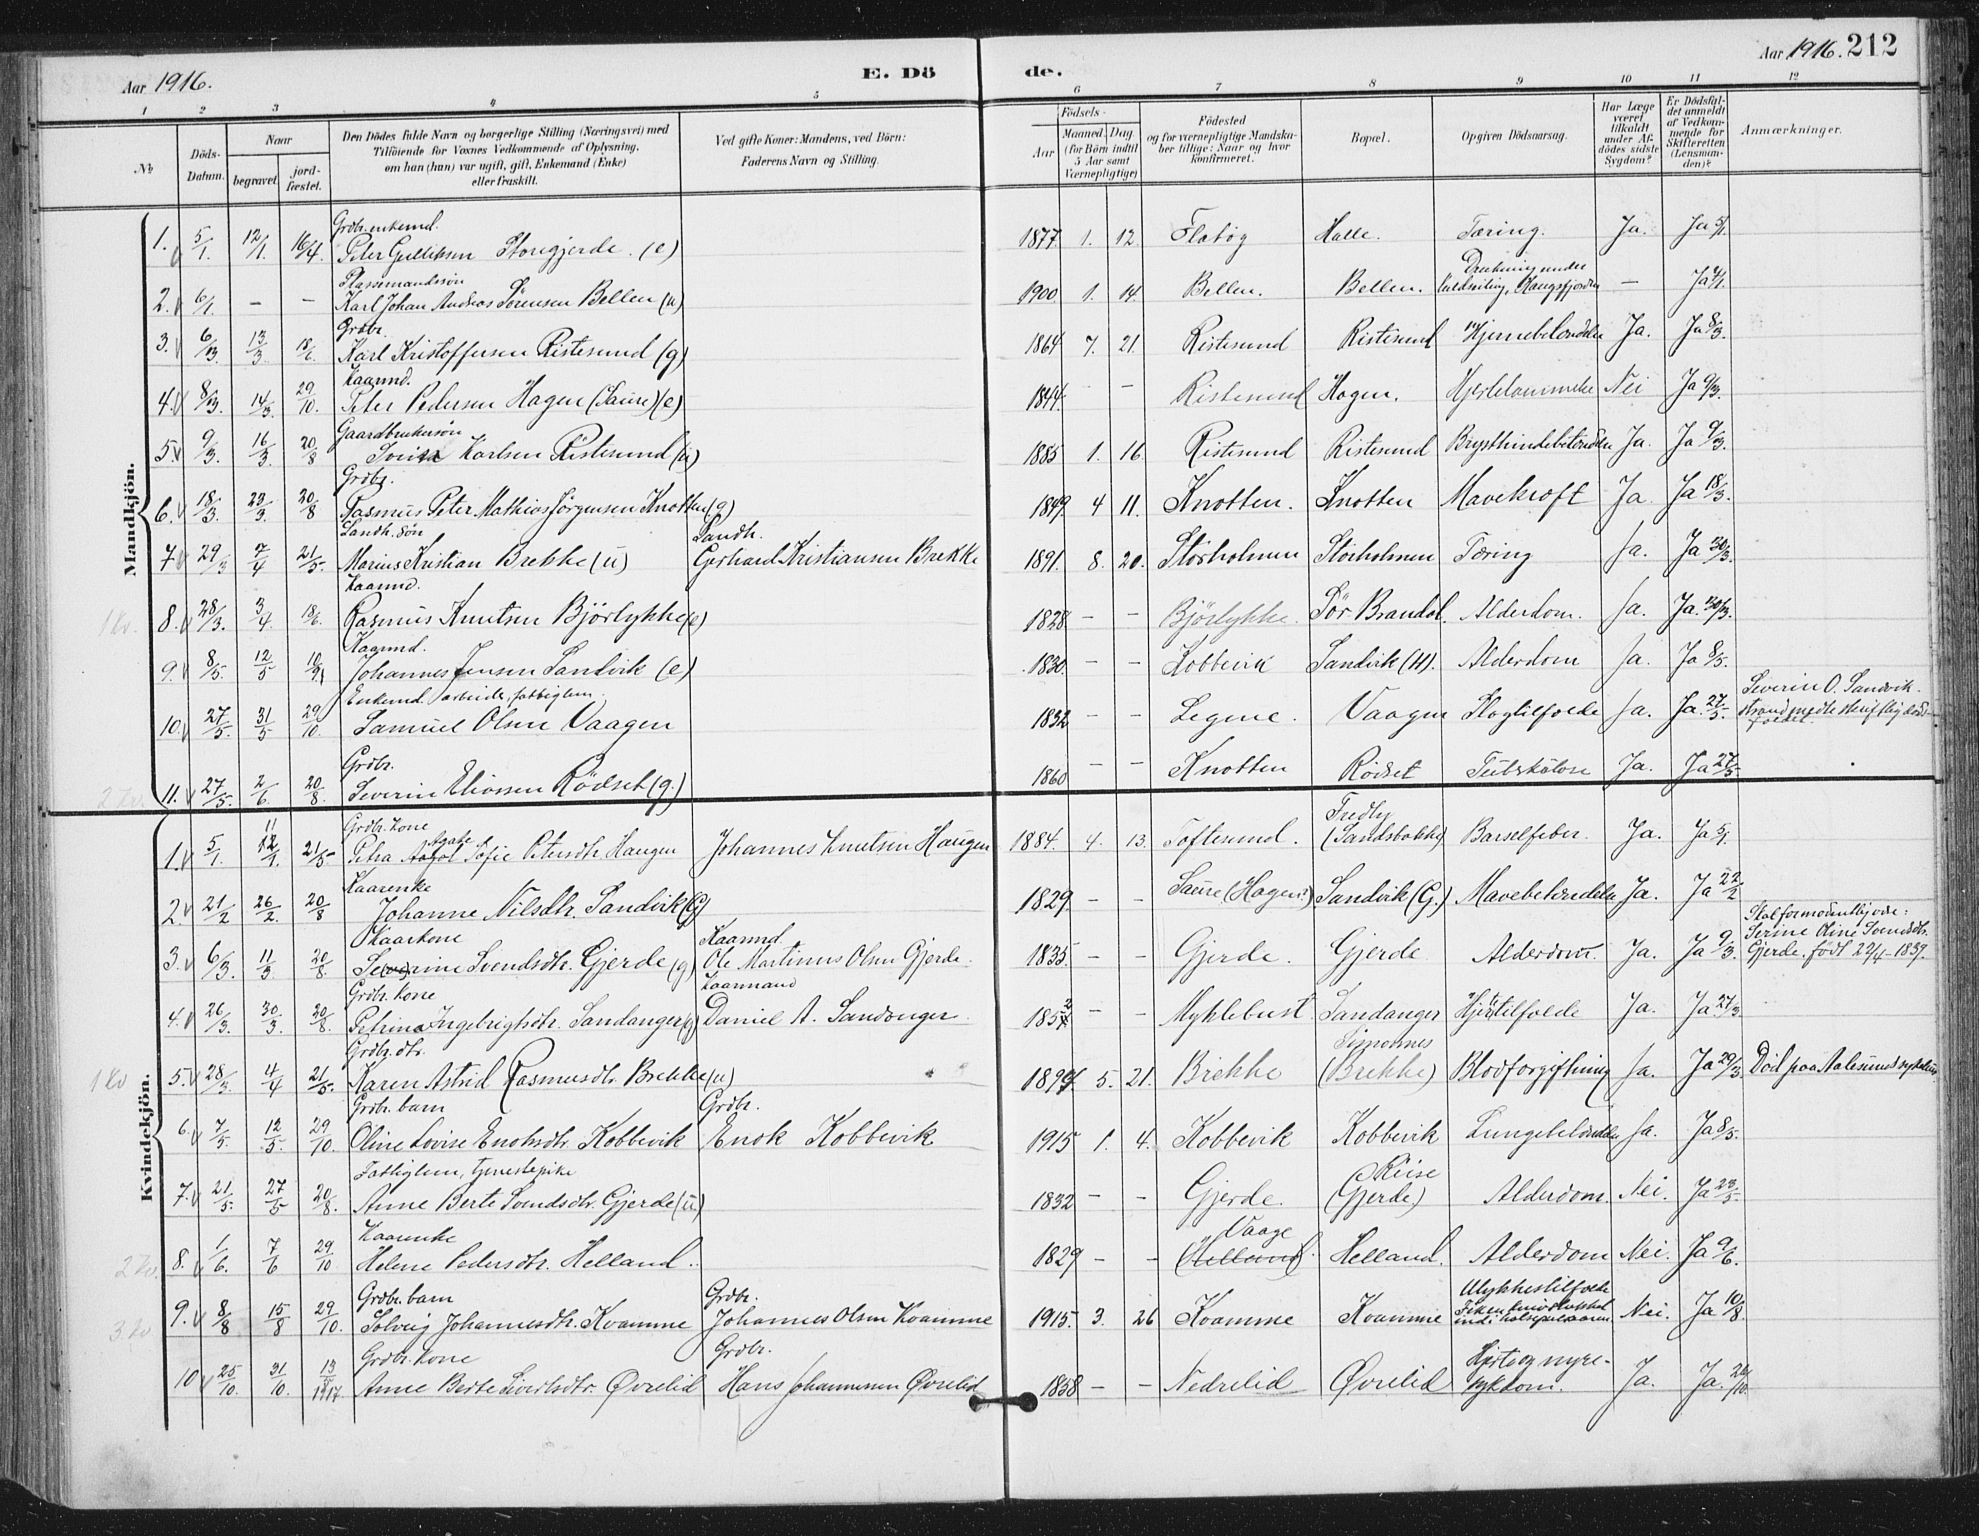 Aar 1916.
E. Dö
de.
Aar 1916. 212
1 2 3 4 5 6 7 8 9 10 11 12
№
Döds-Datum.
Naar
begravet.
jord-fæstet.
Den Dödes fulde Navn og borgerlige Stilling (Næringsvei) med
Tilföiende for Voxnes Vedkommende af Oplysning,
om han (hun) var ugift, gift, Enkemand (Enke)
eller fraskilt.
Ved gifte Koner: Mandens, ved Börn:
Faderens Navn og Stilling.
Födsels-
Aar
Maaned Dag
(for Börn indtil
5 Aar samt
Værnepligtige)
Födested
og for værnepligtige Mandska-
ber tillige: Naar og hvor
konfirmeret.
Bopæl.
Opgiven Dödsaarsag.
Har Læge
været
tilkaldt
under Af-
dödes sidste
Sygdom?
Er Dödsfal-
det anmeldt
af Vedkom-
mende for
Skifteretten
(Lensman-
den)?
Anmærkninger.
Mandkjön.
Grdbr. enkemd.
1. 5/1. 12/1. 16/4. Peter Gulliksen Storegjerde. (e) 1877 1. 12. Flatøy Halle. Tæring. Ja. Ja 5/1.
Plassemandssøn
2. 6/1. – – Karl Johan Andreas Sørensen Bellen (u) 1900 1. 14. Bellen. Bellen. Drukning under – Ja
Grdbr.
3. 6/3. 13/3 18/6. Karl Kristoffersen Ristesund (g) 1864 7. 21. Ristesund Ristesund Hjernebetændelse Ja. Ja 8/3.
Kaarmd.
4. 8/3. 14/3 29/10. Peter Pedersen Hagen (Saure) (e) 1844. – Ristesund Hagen. Hjertelammelse Nei Ja 9/3.
Gaardbrukersøn
5. 9/3. 16/3 20/8 Karlsen Ristesund (u) 1885 1. 16 Ristesund Ristesund Brysthindebetændelse Ja. Ja 9/3.
Grdbr.
6. 18/3. 23/3. 20/8 Rasmus Peter Mathias Jørgensen Knotten (g) 1849 4 11. Knotten. Knotten Mavekræft Ja. Ja 18/3.
Landh. søn Landh.
7. 29/3 7/4 21/5. Marius Kristian Brekke (u) Gerhard Kristiansen Brekke 1891. 8. 20. Storholmen Storholmen Tæring Ja. Ja 30/3.
Kaarmd.
8. 28/3. 3/4. 18/6. Rasmus Knutsen Bjørlykke (e) 1828 – – Bjørlykke. Sør-Brandal. Alderdom. Ja. Ja. 30/3.
Kaarmd.
9. 8/5. 12/5 10/9 Johannes Jensen Sandvik (e) 1830. – – Kobbevik Sandvik (H). Alderdom Ja. Ja 8/5.
Enkemd. arbeider, fattiglem.
10. 27/5. 31/5 29/10. Samuel Olsen Vaagen 1832 – – Legene. Vaagen Slagtilfælde Ja. Ja. 27/5. Severin O. Sandvik.
Grdbr.
11. 27/5. 2/6. 20/8. Severin Eliassen Rødset (g.) 1860 – – Knotten Rødset Tuberkulose Ja. Ja 27/5.
Kvindekjön.
Grdbr. kone Agate Fredly
1. 5/1. 12/1. 21/5 Petra Sofie Petersdtr. Haugen Johannes Knutsen Haugen 1884. 4. 13. Toftesund. (Sandsbakke) Barselfeber. Ja. Ja 5/1.
Kaarenke
2. 21/2 26/2. 20/8 Johanne Nilsdtr. Sandvik (G) 1829. – – Saure (Hagen) Sandvik (G.) Mavebetændelse Ja. Ja 22/2
Kaarkone Kaarmd.
3. 6/3. 11/3 20/8. Severine Svendsdtr. Gjerde (g) Ole Martinus Olsen Gjerde. 1835. – – Gjerde. Gjerde Alderdom. Ja. Ja 9/3. Skal formodentlig være:
Serine Oline Svendsdtr.
Gjerde, født 22/4 – 1837.
Grdbr. kone Kaarmand
4. 26/3. 30/3. 20/8. Petrina Ingebrigtsdtr. Sandanger (g) Daniel A. Sandanger. 1852 – – Myklebust Sandanger Hjertetilfælde Ja. Ja 27/3.
Grdbr. dtr. Simonnes
5. 28/3 4/4 21/5. Karen Astrid Rasmusdtr. Brekke (u) 1899 5. 21. Brekke (Brekke) Blodforgiftning Ja. Ja 29/3. Død paa Aalesunds sykehus
Grdbr. barn Grdbr.
6. 7/5. 12/5. 29/10. Oline Lovise Enoksdtr. Kobbevik Enok Kobbevik 1915 1. 4. Kobbevik Kobbevik Lungebetændelse Ja. Ja 8/5.
Fattiglem, tjenestepike Riise
7. 21/5. 27/5 20/8. Anne Berte Svendsdtr. Gjerde (u) 1832 – – Gjerde. (Gjerde) Alderdom. Nei. Ja 23/5.
Kaarenke Vaage
8. 1/6. 7/6 29/10 Helene Pedersdtr. Helland. 1829 – – (Helland). Helland. Alderdom Nei. Ja 9/6.
Grdbr. barn Grdbr. Ulykkestilfælde
9. 8/8 15/8 29/10. Solveig Johannesdtr. Kvamme Johannes Olsen Kvamme 1915. 3. 26 Kvamme Kvamme Nei. Ja 10/8.
Grdbr. kone Grdbr. Hjerte og nyre-
10 25/10. 31/10. 13/1 1917 Anne Berte Sivertsdtr. Øvrelid Hans Johannessen Øvrelid 1858 – – Nedrelid Øvrelid sykdom. Ja. Ja. 26/10.